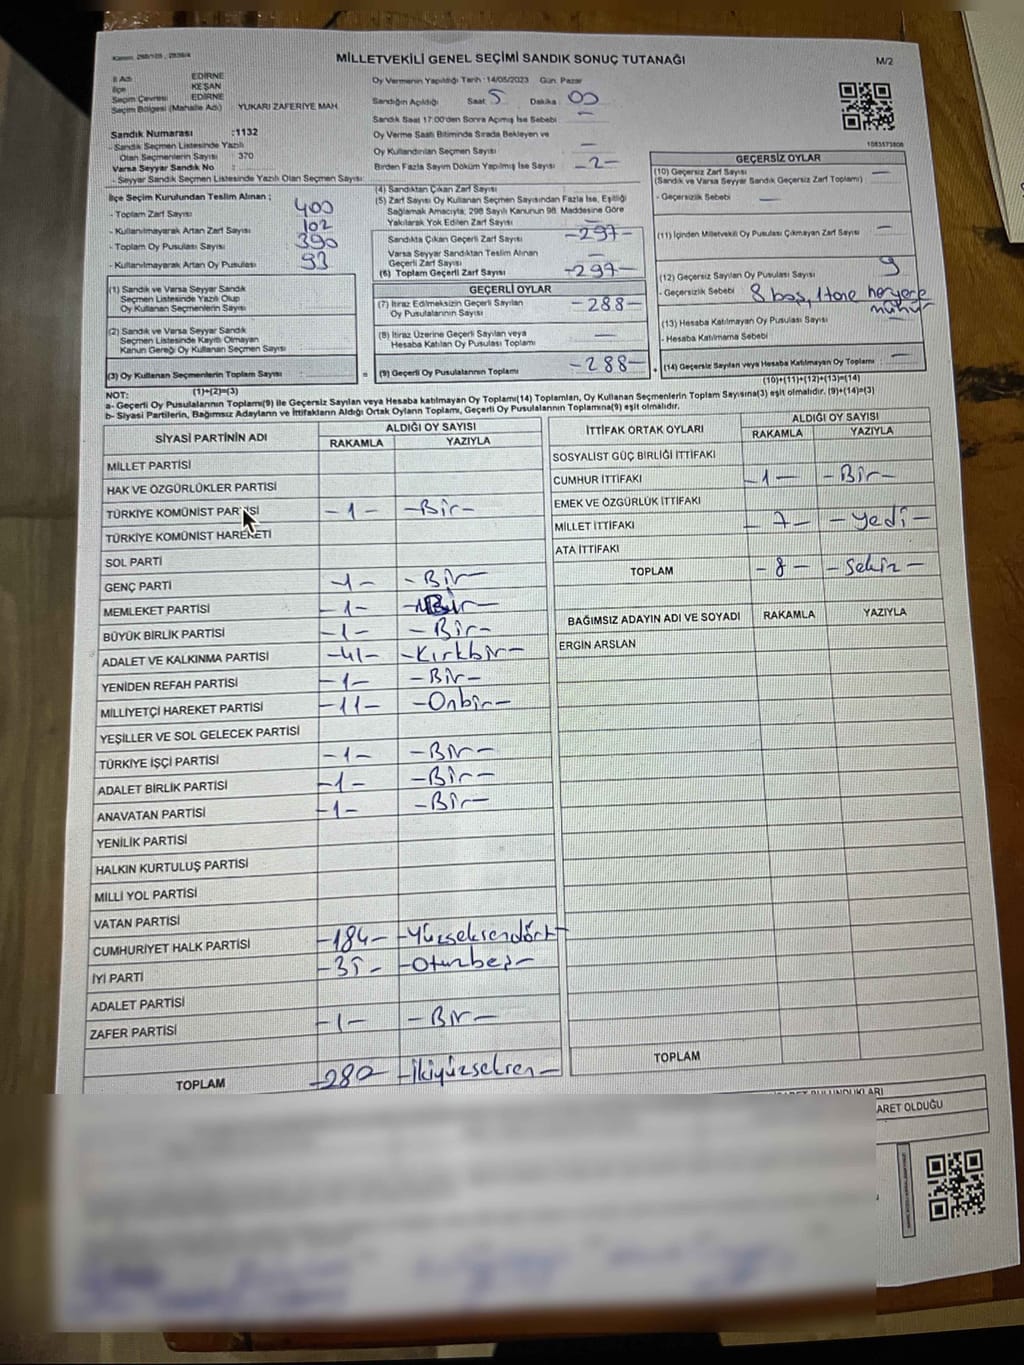 MİLLETVEKİLİ GENEL SEÇİMİ SANDIK SONUÇ TUTANAĞI
M/2
İl Adı EDİRNE
İlçe KEŞAN
Seçim Çevresi EDİRNE
Seçim Bölgesi (Mahalle Adı) : YUKARI ZAFERİYE MAH
Sandık Numarası :1132
- Sandık Seçmen Listesinde Yazılı
Olan Seçmenlerin Sayısı : 370
Varsa Seyyar Sandık No :
- Seyyar Sandık Seçmen Listesinde Yazılı Olan Seçmen Sayısı:
Oy Vermenin Yapıldığı Tarih :14/05/2023 Gün: Pazar
Sandığın Açıldığı Saat : 5 Dakika : 00
Sandık Saat 17:00'den Sonra Açmış İse Sebebi —
Oy Verme Saati Bitiminde Sırada Bekleyen ve
Oy Kullandırılan Seçmen Sayısı —
Birden Fazla Sayım Döküm Yapılmış İse Sayısı -2-
İlçe Seçim Kurulundan Teslim Alınan ;
- Toplam Zarf Sayısı 400
- Kullanılmayarak Artan Zarf Sayısı 102
- Toplam Oy Pusulası Sayısı 390
- Kullanılmayarak Artan Oy Pusulası 93
(1) Sandık ve Varsa Seyyar Sandık
Seçmen Listesinde Yazılı Olup
Oy Kullanan Seçmenlerin Sayısı
(2) Sandık ve Varsa Seyyar Sandık
Seçmen Listesinde Kayıtlı Olmayan
Kanun Gereği Oy Kullanan Seçmen Sayısı
(3) Oy Kullanan Seçmenlerin Toplam Sayısı
(1)+(2)=(3)
(4) Sandıktan Çıkan Zarf Sayısı
(5) Zarf Sayısı Oy Kullanan Seçmen Sayısından Fazla İse, Eşitliği
Sağlamak Amacıyla, 298 Sayılı Kanunun 98. Maddesine Göre
Yakılarak Yok Edilen Zarf Sayısı —
Sandıkta Çıkan Geçerli Zarf Sayısı -297-
Varsa Seyyar Sandıktan Teslim Alınan
Geçerli Zarf Sayısı —
(6) Toplam Geçerli Zarf Sayısı -297-
GEÇERLİ OYLAR
(7) İtiraz Edilmeksizin Geçerli Sayılan
Oy Pusulalarının Sayısı -288-
(8) İtiraz Üzerine Geçerli Sayılan veya
Hesaba Katılan Oy Pusulası Toplamı —
= (9) Geçerli Oy Pusulalarının Toplamı -288-
1083573808
GEÇERSİZ OYLAR
(10) Geçersiz Zarf Sayısı —
(Sandık ve Varsa Seyyar Sandık Geçersiz Zarf Toplamı)
- Geçersizlik Sebebi —
(11) İçinden Milletvekili Oy Pusulası Çıkmayan Zarf Sayısı —
(12) Geçersiz Sayılan Oy Pusulası Sayısı 9
- Geçersizlik Sebebi 8 boş, 1 tane heryere
mühür
(13) Hesaba Katılmayan Oy Pusulası Sayısı —
- Hesaba Katılmama Sebebi
+ (14) Geçersiz Sayılan veya Hesaba Katılmayan Oy Toplamı : —
(10)+(11)+(12)+(13)=(14)
NOT:
a- Geçerli Oy Pusulalarının Toplamı(9) ile Geçersiz Sayılan veya Hesaba katılmayan Oy Toplamı(14) Toplamları, Oy Kullanan Seçmenlerin Toplam Sayısına(3) eşit olmalıdır. (9)+(14)=(3)
b- Siyasi Partilerin, Bağımsız Adayların ve İttifakların Aldığı Ortak Oyların Toplamı, Geçerli Oy Pusulalarının Toplamına(9) eşit olmalıdır.
SİYASİ PARTİNİN ADI ALDIĞI OY SAYISI
RAKAMLA YAZIYLA
MİLLET PARTİSİ
HAK VE ÖZGÜRLÜKLER PARTİSİ
TÜRKİYE KOMÜNİST PARTİSİ -1- -Bir-
TÜRKİYE KOMÜNİST HAREKETİ
SOL PARTİ
GENÇ PARTİ -1- -Bir-
MEMLEKET PARTİSİ -1- -Bir-
BÜYÜK BİRLİK PARTİSİ -1- -Bir-
ADALET VE KALKINMA PARTİSİ -41- -Kırkbir-
YENİDEN REFAH PARTİSİ -1- -Bir-
MİLLİYETÇİ HAREKET PARTİSİ -11- -Onbir-
YEŞİLLER VE SOL GELECEK PARTİSİ
TÜRKİYE İŞÇİ PARTİSİ -1- -Bir-
ADALET BİRLİK PARTİSİ -1- -Bir-
ANAVATAN PARTİSİ -1- -Bir-
YENİLİK PARTİSİ
HALKIN KURTULUŞ PARTİSİ
MİLLİ YOL PARTİSİ
VATAN PARTİSİ
CUMHURİYET HALK PARTİSİ -184- -Yüzseksendört-
İYİ PARTİ -35- -Otuzbeş-
ADALET PARTİSİ
ZAFER PARTİSİ -1- -Bir-
TOPLAM -280- -İkiyüzseksen-
İTTİFAK ORTAK OYLARI ALDIĞI OY SAYISI
RAKAMLA YAZIYLA
SOSYALİST GÜÇ BİRLİĞİ İTTİFAKI
CUMHUR İTTİFAKI -1- -Bir-
EMEK VE ÖZGÜRLÜK İTTİFAKI
MİLLET İTTİFAKI -7- -Yedi-
ATA İTTİFAKI
TOPLAM -8- -Sekiz-
BAĞIMSIZ ADAYIN ADI VE SOYADI RAKAMLA YAZIYLA
ERGİN ARSLAN
TOPLAM
ARET OLDUĞU